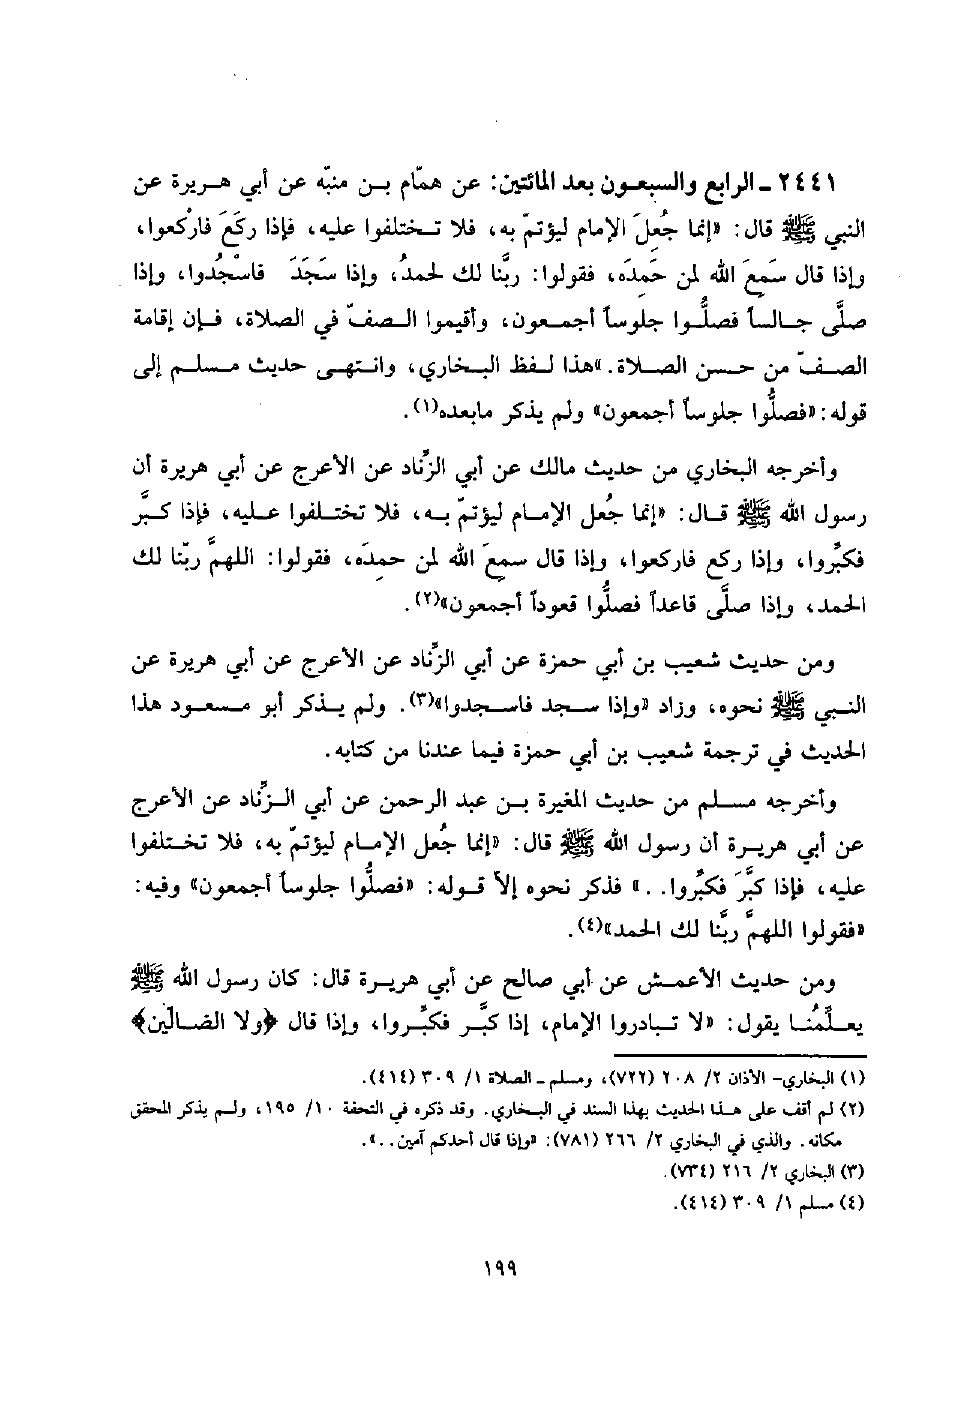 ٢٤٤١ - الرابع والسبعون بعد المائتين: عن همّام بن منبّه عن أبي هريرة عن
النبي ﷺ قال: «إنما جُعِلَ الإمام ليؤتمّ به، فلا تختلفوا عليه، فإذا ركَعَ فارْكعوا،
وإذا قال سَمِعَ الله لمن حَمِدَه، فقولوا: ربَّنا لك لحمدُ، وإذا سَجَدَ فاسْجُدوا، وإذا
صلَّى جالساً فصلُّوا جلوساً أجمعون، وأقيموا الصفّ في الصلاة، فإن إقامة
الصفّ من حسن الصلاة.» هذا لفظ البخاري، وانتهى حديث مسلم إلى
قوله: «فصلُّوا جلوساً أجمعون» ولم يذكر مابعده(١).
وأخرجه البخاري من حديث مالك عن أبي الزِّناد عن الأعرج عن أبي هريرة أن
رسول الله ﷺ قال: «إنما جُعل الإمام ليؤتمّ به، فلا تختلفوا عليه، فإذا كبَّر
فكبِّروا، وإذا ركع فاركعوا، وإذا قال سمِعَ الله لمن حمِدَه، فقولوا: اللهمَّ ربّنا لك
الحمد، وإذا صلَّى قاعداً فصلُّوا قعوداً أجمعون»(٢).
ومن حديث شعيب بن أبي حمزة عن أبي الزِّناد عن الأعرج عن أبي هريرة عن
النبي ﷺ نحوه، وزاد «وإذا سجد فاسجدوا»(٣). ولم يذكر أبو مسعود هذا
الحديث في ترجمة شعيب بن أبي حمزة فيما عندنا من كتابه.
وأخرجه مسلم من حديث المغيرة بن عبد الرحمن عن أبي الزِّناد عن الأعرج
عن أبي هريرة أن رسول الله ﷺ قال: «إنما جُعل الإمام ليؤتمّ به، فلا تختلفوا
عليه، فإذا كبَّرَ فكبِّروا. .» فذكر نحوه إلاّ قوله: «فصلُّوا جلوساً أجمعون» وفيه:
«فقولوا اللهمَّ ربَّنا لك الحمد»(٤).
ومن حديث الأعمش عن أبي صالح عن أبي هريرة قال: كان رسول الله ﷺ
يعلِّمُنا يقول: «لا تبادروا الإمام، إذا كبَّر فكبِّروا، وإذا قال ﴿ولا الضالّين﴾
(١) البخاري- الأذان ٢/ ٢٠٨ (٧٢٢)، ومسلم - الصلاة ١/ ٣٠٩ (٤١٤).
(٢) لم أقف على هذا الحديث بهذا السند في البخاري. وقد ذكره في التحفة ١٠/ ١٩٥، ولم يذكر المحقق
مكانه. والذي في البخاري ٢/ ٢٦٦ (٧٨١): «وإذا قال أحدكم آمين. . .».
(٣) البخاري ٢/ ٢١٦ (٧٣٤).
(٤) مسلم ١/ ٣٠٩ (٤١٤).
١٩٩